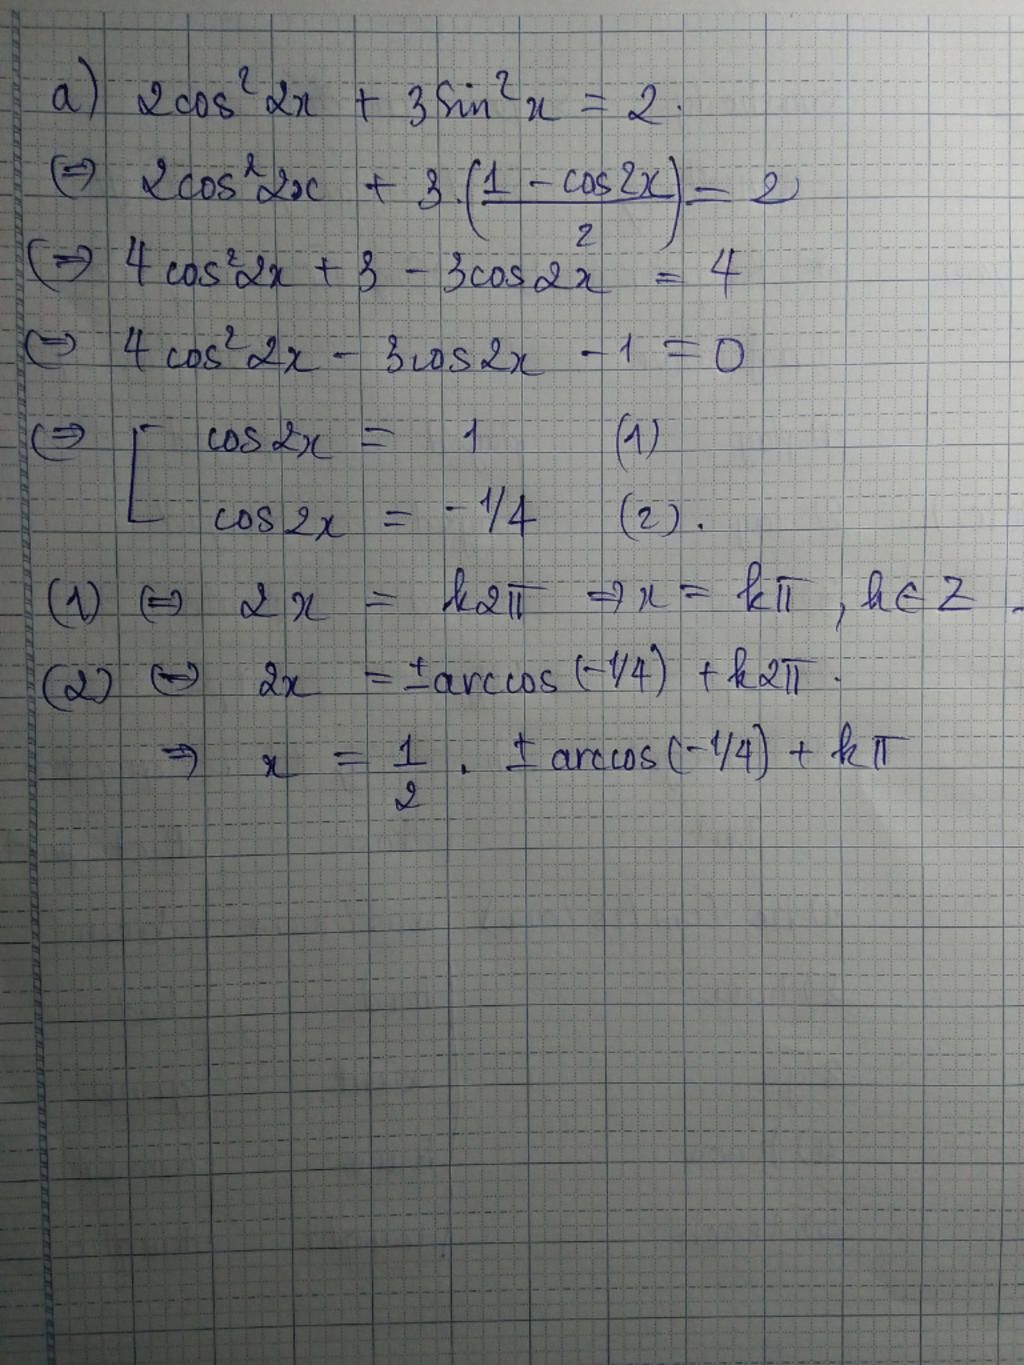 a) 2cos²2x + 3sin²x = 2.
⇔ 2cos²2x + 3.(1 - cos2x / 2) = 2
⇔ 4cos²2x + 3 - 3cos2x = 4
⇔ 4cos²2x - 3cos2x - 1 = 0
⇔ [ cos2x = 1 (1)
cos2x = -1/4 (2).
(1) ⇔ 2x = k2π ⇒ x = kπ, k∈Z.
(2) ⇔ 2x = ±arccos(-1/4) + k2π.
⇒ x = 1/2 . ± arccos(-1/4) + kπ